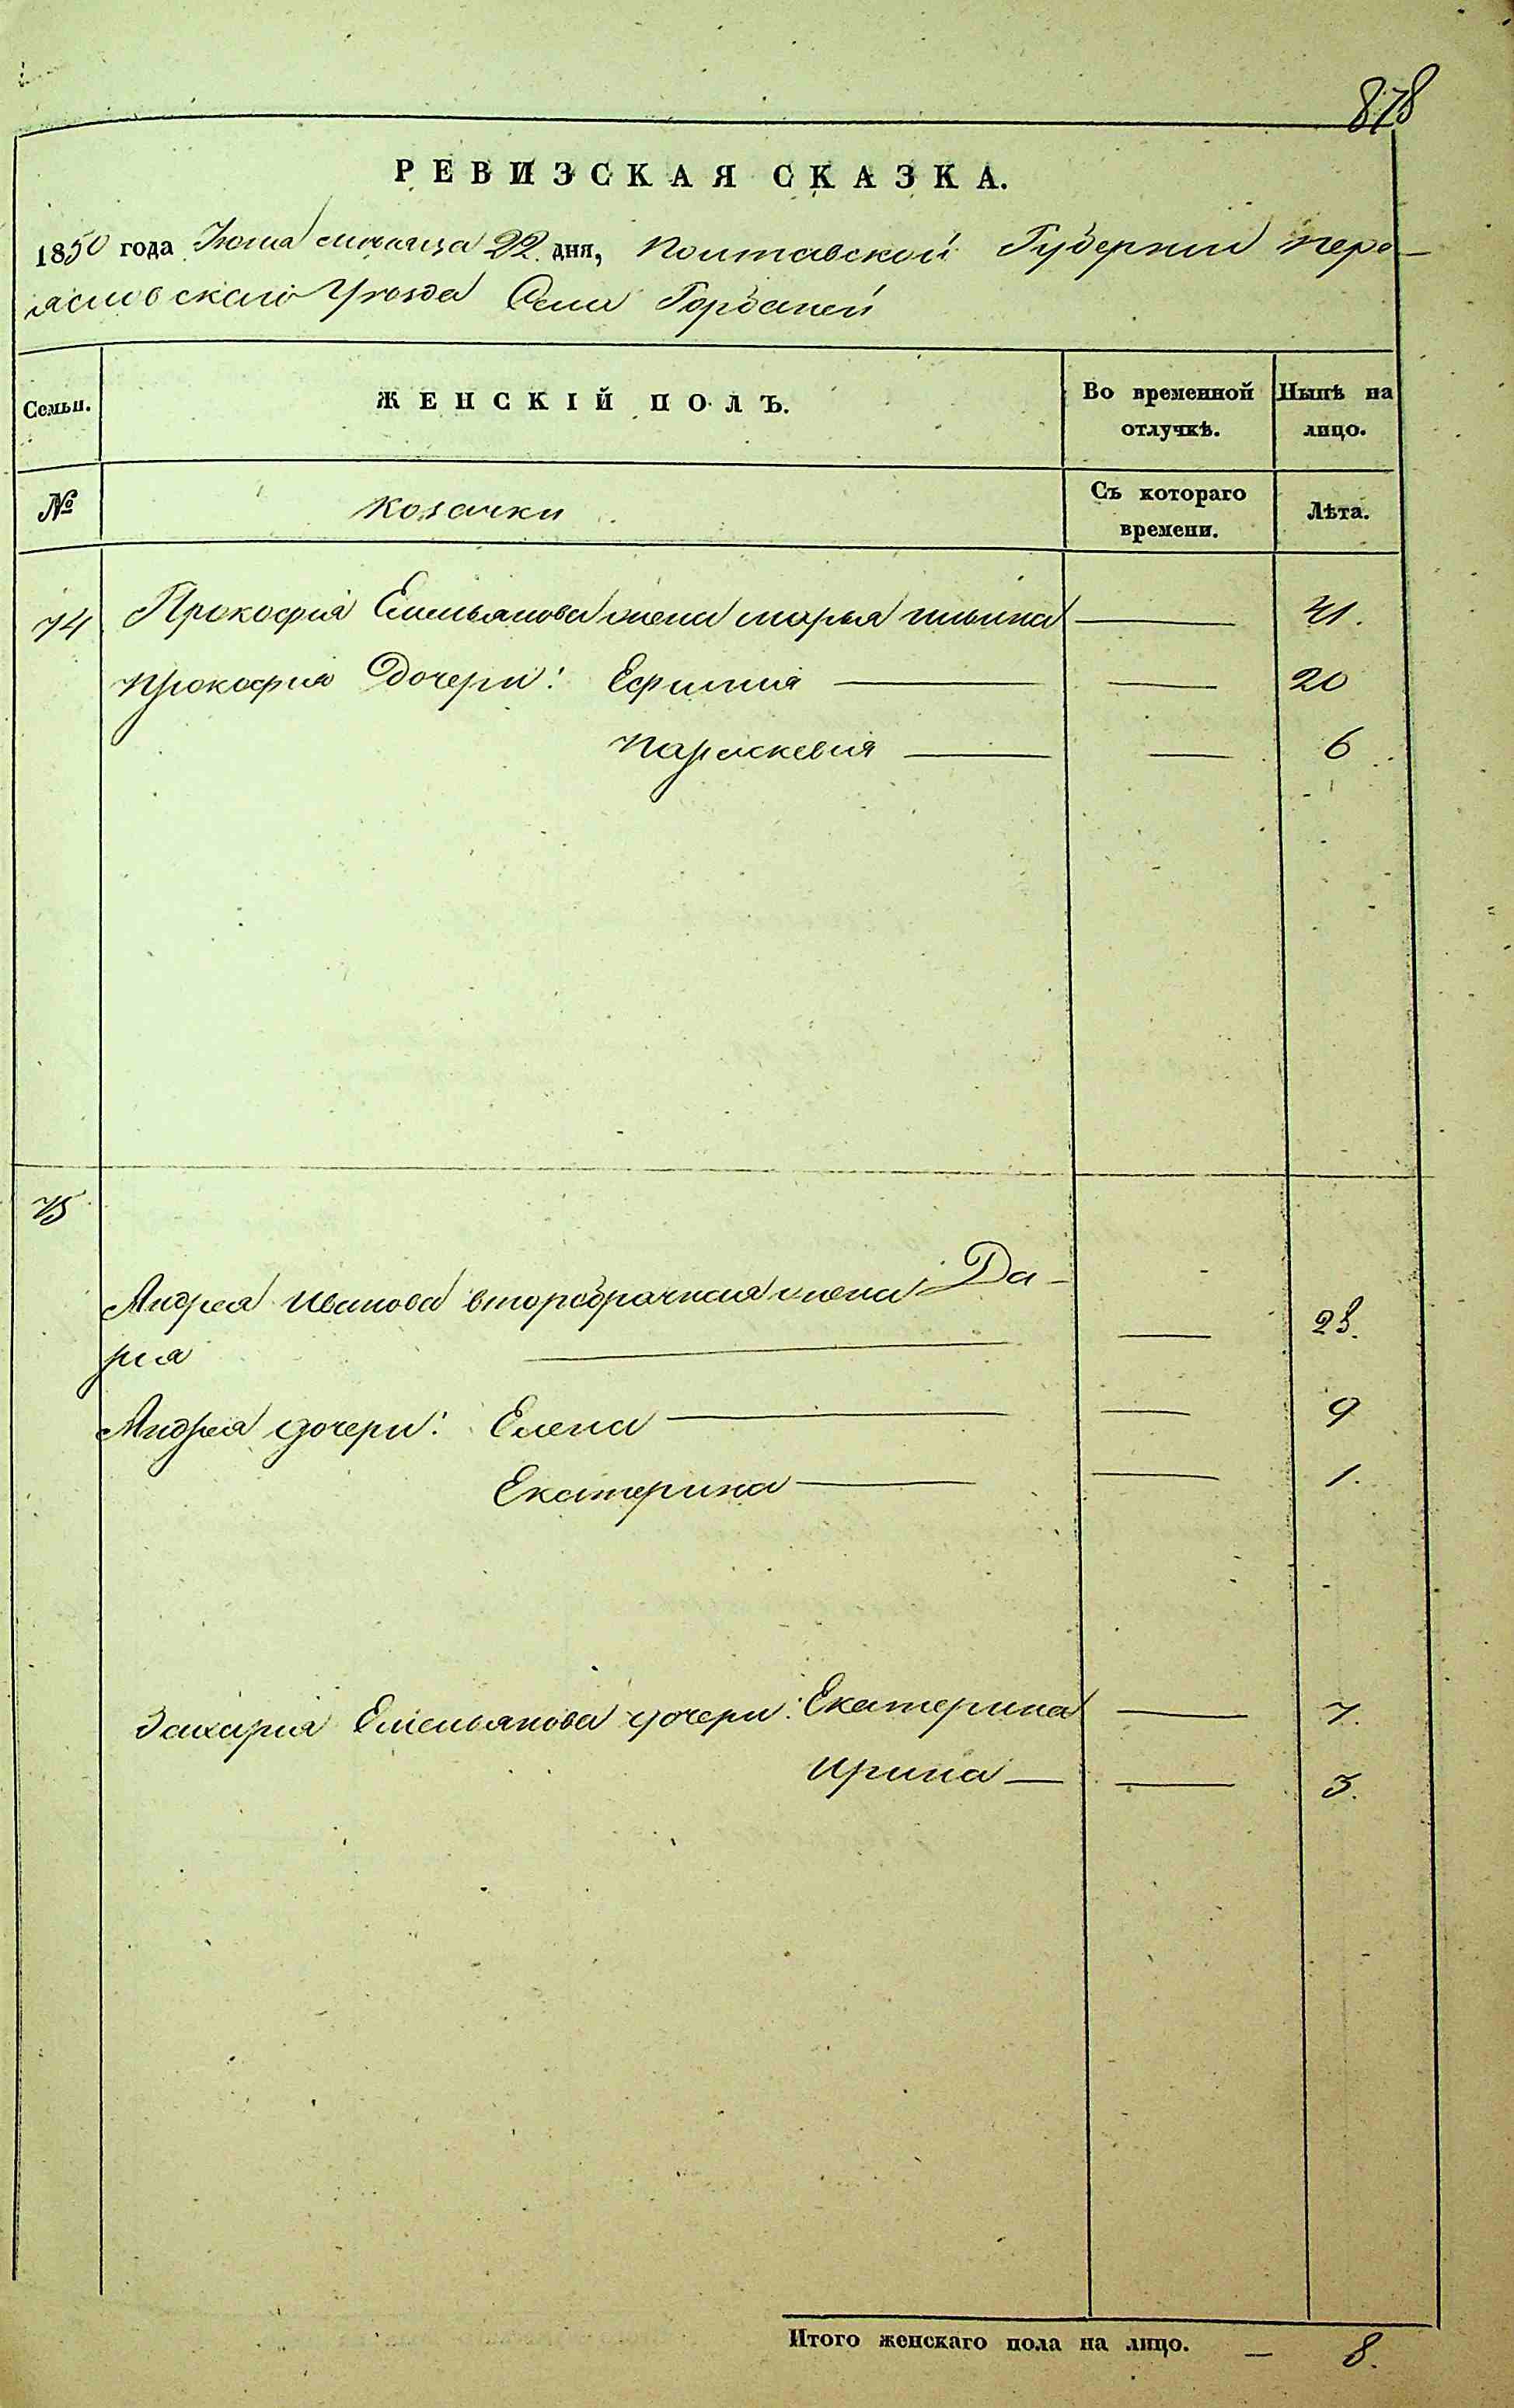 878
РЕВИЗСКАЯ СКАЗКА.
1850 года Июня месяца 22 дня, Полтавской Губернии Пере-
яславского Уезда Села Горбаней
Семьи. ЖЕНСКІЙ ПОЛЪ. Во временной отлучкѣ. Нынѣ на лицо.
№ Козачки Съ котораго времени. Лѣта.
74 Прокофия Емельянова жена Марья Ильина — 41.
Прокофия Дочери: Ефимия — — 20
Параскевия — — 6
75
Андрея Иванова второбрачная жена Да-
рия — — 28.
Андрея дочери: Елена — — 9
Екатерина — — 1.
Захария Емельянова дочери: Екатерина — 7.
Ирина — — 3.
Итого женскаго пола на лицо. — 8.